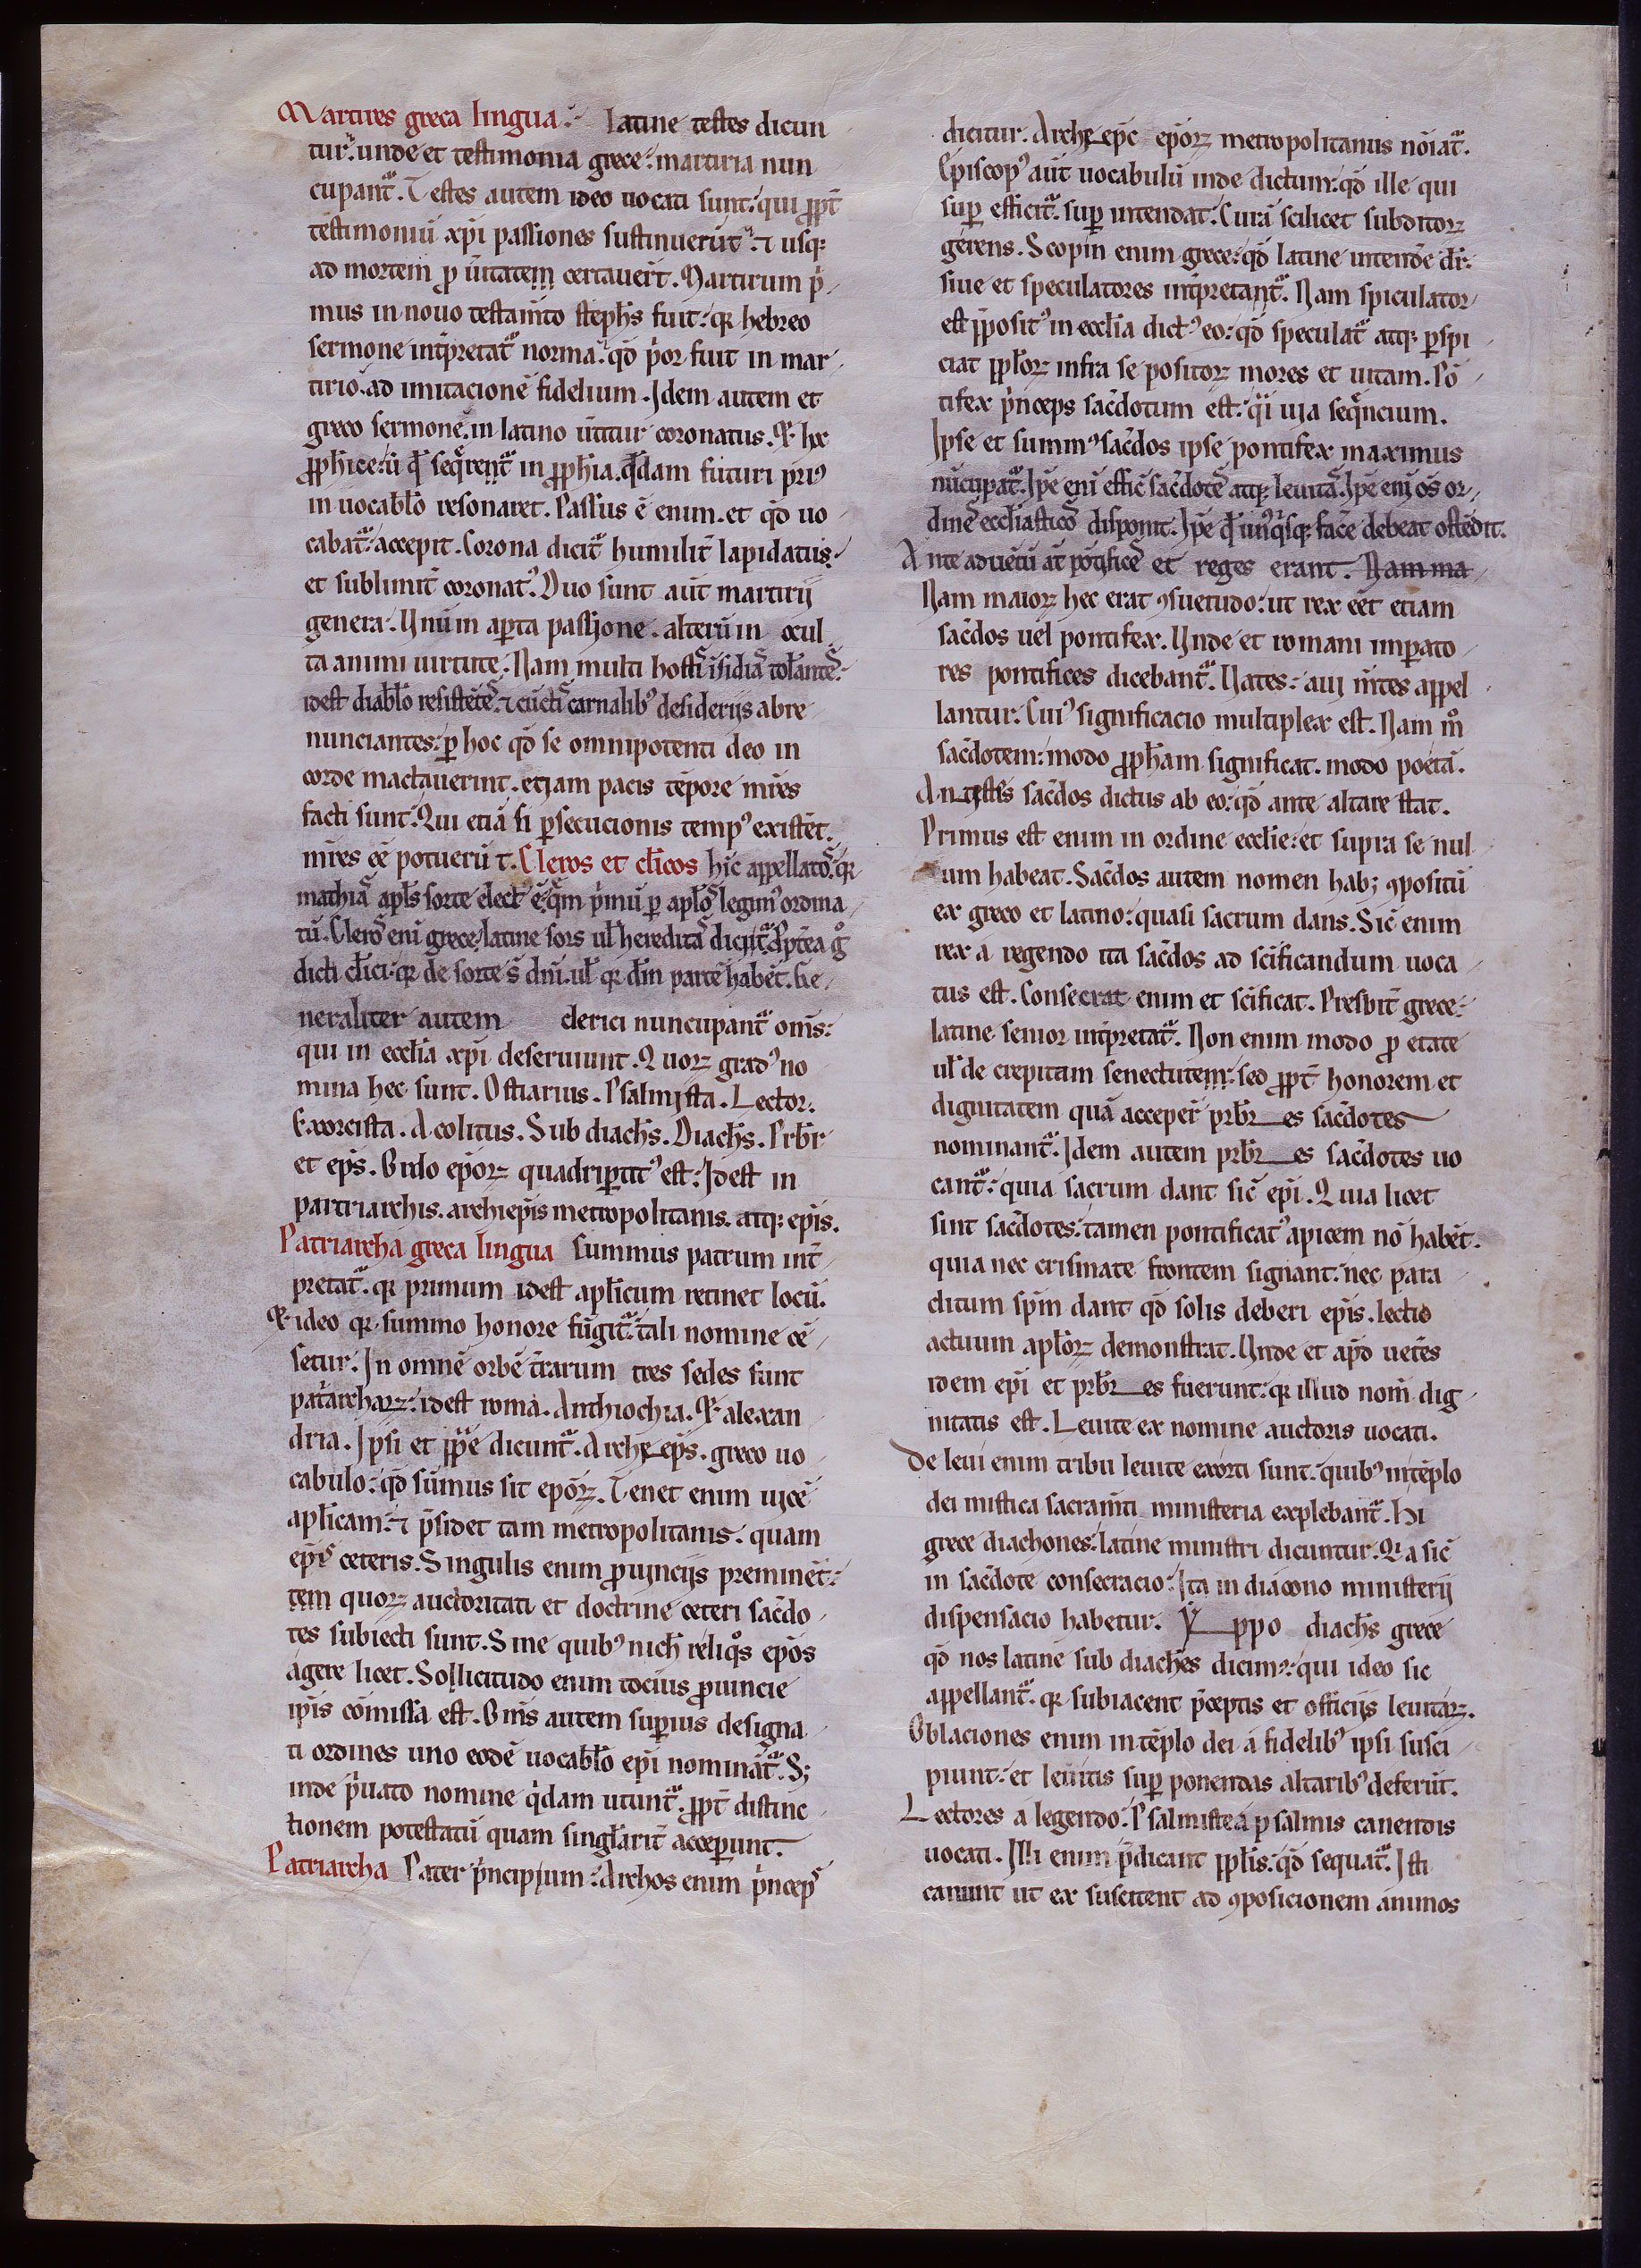 Martires greca lingua. latine testes dicun
tur. unde et testimonia grece. martiria nun
cupant᷑. Testes autem ideo uocati sunt. qui ꝓpt̄
testimoniū xp̄i passiones sustinuerūt. ⁊ usq;
ad mortem ꝓ ūitatem certauer̄t. Martirum p̄
mus in nouo testam̄to steph̄s fuit. qr hebreo
sermone int̄pretat᷑ norma. qd̄ p̄or fuit in mar
tirio. ad imitacionē fidelium. Idem autem et
greco sermonē. in latino ūtitur coronatus. & hc̄
ꝓph̄ice. ū qd̄ seq̄rent᷑ in ꝓph̄ia. q̄dam futuri pri᷒
in uocabl̄o resonaret. Passus ē enim. et qd̄ uo
cabat᷑. accepit. Corona dicit᷑ humilit̄ lapidatus.
et sublimit̄ coronat᷒. Duo sunt aūt martirij
genera. Vnū in aꝑta passione. alterū in ocul
ta animi uirtute. Nam multi hostiᷤ isidiaᷤ tol̄anteᷤ.
idest diabl̄o resistēteᷤ. ⁊ cūctiᷤ carnalib᷒ desiderijs abre
nunciantes. ꝑ hoc qd̄ se omnipotenti deo in
corde mactauerint. etiam pacis tēpore mr̄es
facti sunt. Qui etiā si ꝑsecucionis temp᷒ existēt.
mr̄es eē potuerū t. Cleros et cl̄icos hic appellatoᷤ. qr
mathiaᷤ apl̄s sorte elect᷒ ē. q̄m p̄mū ꝑ aploᷤ legim᷒ ordina
tū. Cleroᷤ eni grece. latine sors ul̄ hereditaᷤ dicit᷑. Ꝓpt̄ea g̊
dicti cl̄ici. qr de sorte s̄ dn̄i. ul̄ qr dn̄i partē habēt. Ge
neraliter autem clerici nuncupant᷑ om̄s.
qui in eccl̄ia xp̄i deseruiunt. Quorꝝ grad᷒ no
mina hec sunt. Ostiarius. Psalmista. Lector.
Exorcista. Acolitus. Sub diach̄s. Diach̄s. Prb̄r
et ep̄s. Ordo ep̄orꝝ quadriꝑtit᷒ est. Idest in
partriarchis. archiep̄is metropolitanis. atq; ep̄is.
Patriarcha greca lingua summus patrum int̄
pretat᷑. qr primum idest apl̄icum retinet locū.
& ideo qr summo honore fūgit᷑. tali nomine cē
setur. In omnē orbē t̄rarum tres sedes sunt
pat̄archarꝝ. idest roma. Anthiochia. & alexan
dria. Ipsi et pp̄e dicunt᷑. Archieps̄. greco uo
cabulo. qd̄ sūmus sit ep̄orꝝ. Tenet enim uicē
apl̄icam. ⁊ p̄sidet tam metropolitanis. quam
ep̄iᷤ ceteris. Singulis enim ꝓuincijs preminēt.
tem quorꝝ auctoritati et doctrine ceteri sac̄do
tes subiecti sunt. Sine quib᷒ nich̄ reliq̊s ep̄os
agere licet. Sollicitudo enim tocius ꝓuincie
ip̄is cōmissa est. Om̄s autem suꝑius designa
ti ordines uno eodē uocabl̄o ep̄i nomināt᷑. S;
inde p̄uato nomine q̄dam utunt᷑. ꝓpt̄ distinc
tionem potestatū quam singl̄arit̄ acceꝑunt.
Patriarcha Pater p̄ncipium. Archos enim p̄ncepᷤ
dicitur. Archiep̄c ep̄orꝝ metropolitanus nōiat᷑.
Episcop᷒ aūt uocabulū inde dictum. qd̄ ille qui
suꝑ efficit᷑. suꝑ intendat. Curā scilicet subditorꝝ
gerens. Scopin enim grece. qd̄ latine intende dr̄.
siue et speculatores int̄pretant᷑. Nam spiculator
est p̄posit᷒ in eccl̄ia dict᷒ eo. qd̄ speculat᷑ atq; ꝑspi
ciat ppl̄orꝝ infra se positorꝝ mores et uitam. Pō
tifex p̄nceps sac̄dotum est. q̄i uia seq̄ncium.
Ipse et summ᷒ sac̄dos ipse pontifex maximus
nūcupat᷑. Ip̄e eni effic̄ sac̄doteᷤ atq; leuitaᷤ. Ip̄e eni oᷤs or
dineᷤ eccl̄iasticoᷤ disponit. Ip̄e qd̄ un᷒q̄sq; fac̄e debeat ostēdit.
Ante aduētū at̄ pōtificeᷤ et reges erant. Nam ma
Nam maiorꝝ hec erat ꝯsuetudo. ut rex eēt etiam
sac̄dos uel pontifex. Vnde et romani imꝑato
res pontifices dicebant᷑. Uates. aui m̄tes appel
lantur. Cui᷒ significacio multiplex est. Nam m̊
sac̄dotem. modo ꝓph̄am significat. modo poetā.
Antestis sac̄dos dictus ab eo. qd̄ ante altare stat.
Primus est enim in ordine eccl̄ie. et supra se nul
um habeat. Sac̄dos autem nomen hab; ꝯpositū
ex greco et latino. quasi sacrum dans. Sic̄ enim
rex a regendo ita sac̄dos ad sc̄ificandum uoca
tus est. Consecrat enim et sc̄ificat. Presbit̄ grece.
latine senior int̄pretat᷑. Non enim modo ꝓ etate
ul̄ de crepitam senectutem. sed ꝓpt̄ honorem et
dignitatem quā acceper̄ prb̄r es sac̄dotes
nominant᷑. Idem autem prb̄r es sac̄dotes uo
cant᷑. quia sacrum dant sic̄ ep̄i. Quia licet
sint sac̄dotes. tamen pontificat᷒ apicem nō habēt.
quia nec crismate frontem signant. nec para
clitum spm̄ dant qd̄ solis deberi ep̄is. lectio
actuum apl̄orꝝ demonstrat. Vnde et apd̄ uetēs
idem ep̄i et prb̄r es fuerunt. qr illud nom̄ dig
nitatis est. Leuite ex nomine auctoris uocati.
De leui enim tribu leuite exorti sunt. quib᷒ in tēplo
dei mistica sacram̄ti ministeria explebant᷑. Hi
grece diachones. latine ministri dicuntur. Q a sic̄
in sac̄dote consecracio. Ita in diacono ministerij
dispensacio habetur. Y ppo diach̄s grece
qd̄ nos latine sub diach̄es dicim᷒. qui ideo sic
appellant᷑. qr subiacent p̄ceptis et officijs leuitarꝝ.
Oblaciones enim in tēplo dei a fidelib᷒ ipsi susci
piunt. et leuitis suꝑ ponendas altarib᷒ deferūt.
Lectores a legendo. Psalmiste a psalmis canendis
uocati. Illi enim p̄dicant ppl̄is. qd̄ sequat᷑. Isti
canunt ut ex suscitent ad ꝯposicionem animos